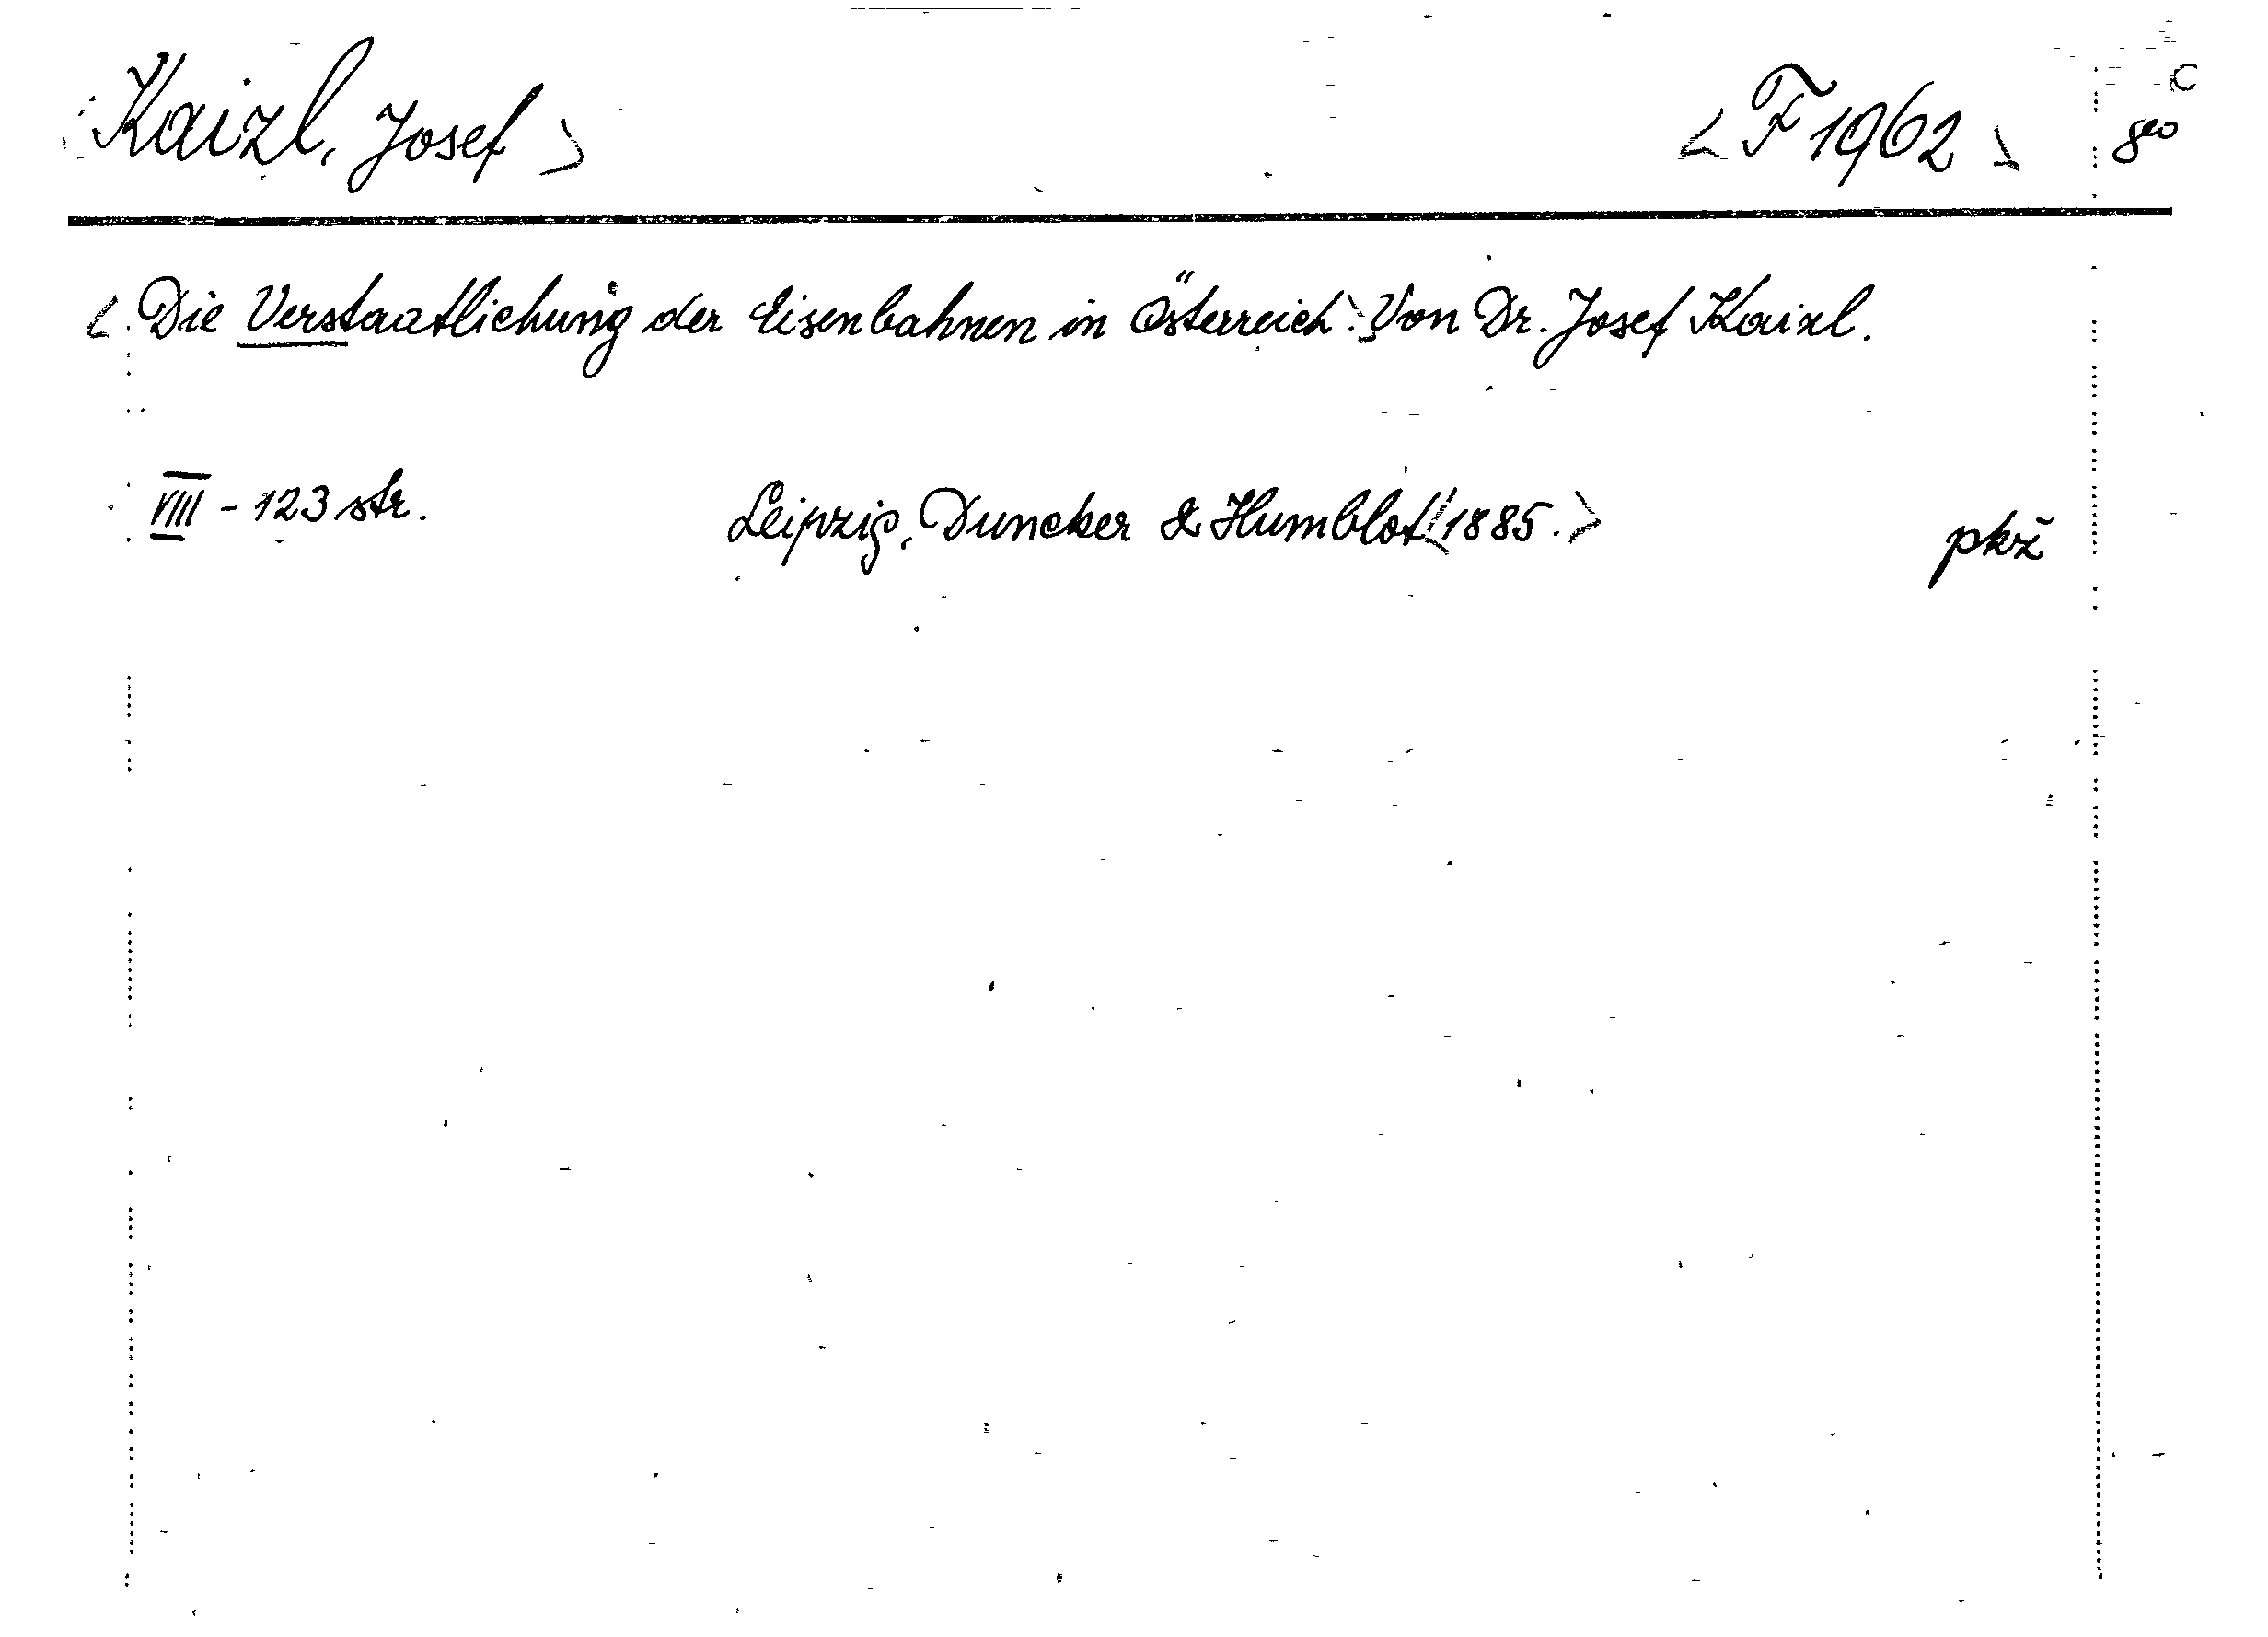 Kaizl, Josef > < F 1962 > 8vo C
< Die Verstaatlichung der Eisenbahnen in Österreich.> Von Dr. Josef Kaizl.
VIII - 123 str. Leipzig, Duncker & Humblot < 1885. > pkž